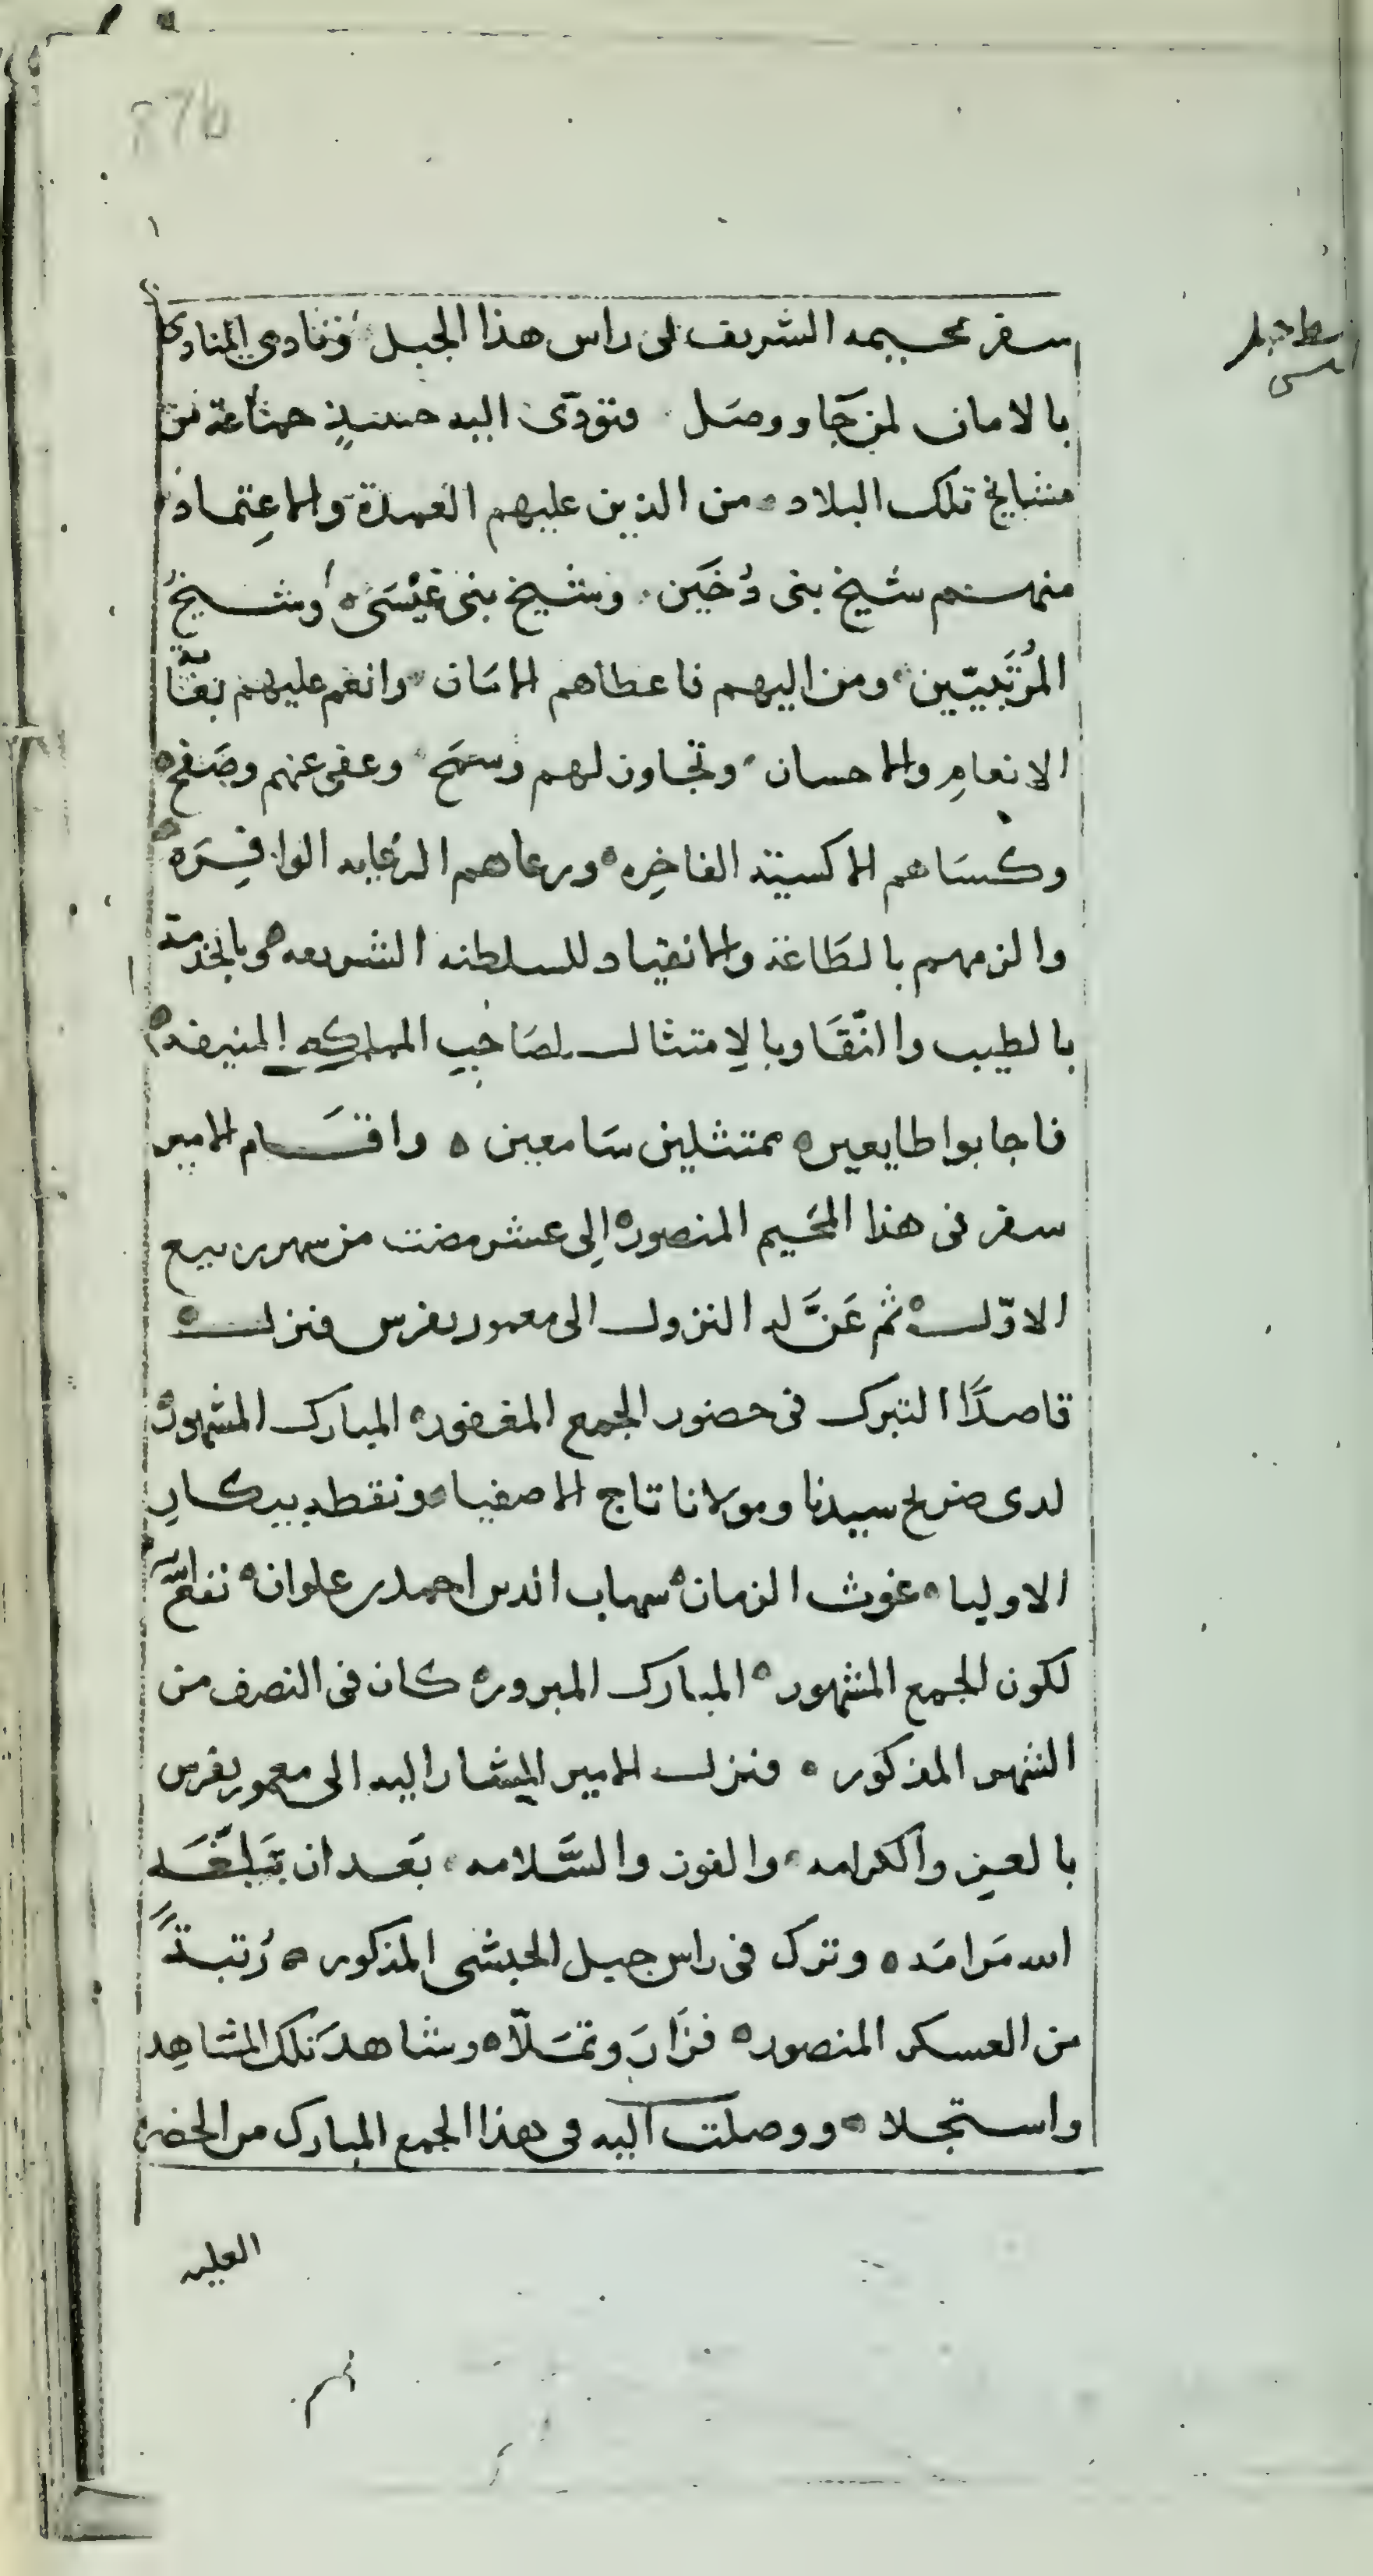 87b
سفر بمخيمه الشريف الى راس هذا الجبل ونادى المنادى
بالامان لمن جَا ووصَل فتودّى اليه حينيذٍ جماعة من
مشايخ تلك البلاد من الذين عليهم العمدة والاعِتماد
منهم شيخ بنى دُخَين وشيخ بنى عَيْسَى وشيخُ
المُرْتَبيّين ومن اليهم فاعطاهم الامَان وانعم عليهم
الانعامِ والاحسان وتجاوز لهم وسَمَح وعفى عنهم وصَفح
وكسَاهم الاكسيَة الفاخِره ورعاهم الرعَايه الوافِرَه
والزمهم بالطَاعَة والانقياد للسلطنه الشريفه وبالخدمة
بالطيب والنّقَا وبالاِمتثال لصَاحِبِ المملكهِ المنيفه
فاجابوا طايعين ممتثلين سَامعين واقَام الامير
سفر فى هذا المخَيم المنصور الِى عشر مضت من شهر ربيع
الاوّل ثم عَنَّ له النزول الى معمور يفرس فنزل
قاصدًا التبرك فى حضور الجمع المغفور المبارك المشهور
لدى ضريح سيدنا ومولانا تاج الاصفيا ونقطه بيكارِ
الاوليا غوث الزمان شهاب الدين احمد بن علوان نفع الله
لكون الجمع المشهور المبارك المبرور كان فى النصف من
الشهر المذكور فنزل الامير المشار اليه الى معمور يفرس
بالعز والكرامه والفوز والسَّلامه بَعد ان بَلّغَه
الله مَرامَه وترك فى راس جبل الحبشى المذكور رُتبةً
من العسكر المنصور فزَارَ وتمَلّا وشاهدَ تلك المشاهِد
واستجلا ووصلت اليه فى هذا الجمع المبارك من الحضره
العليه